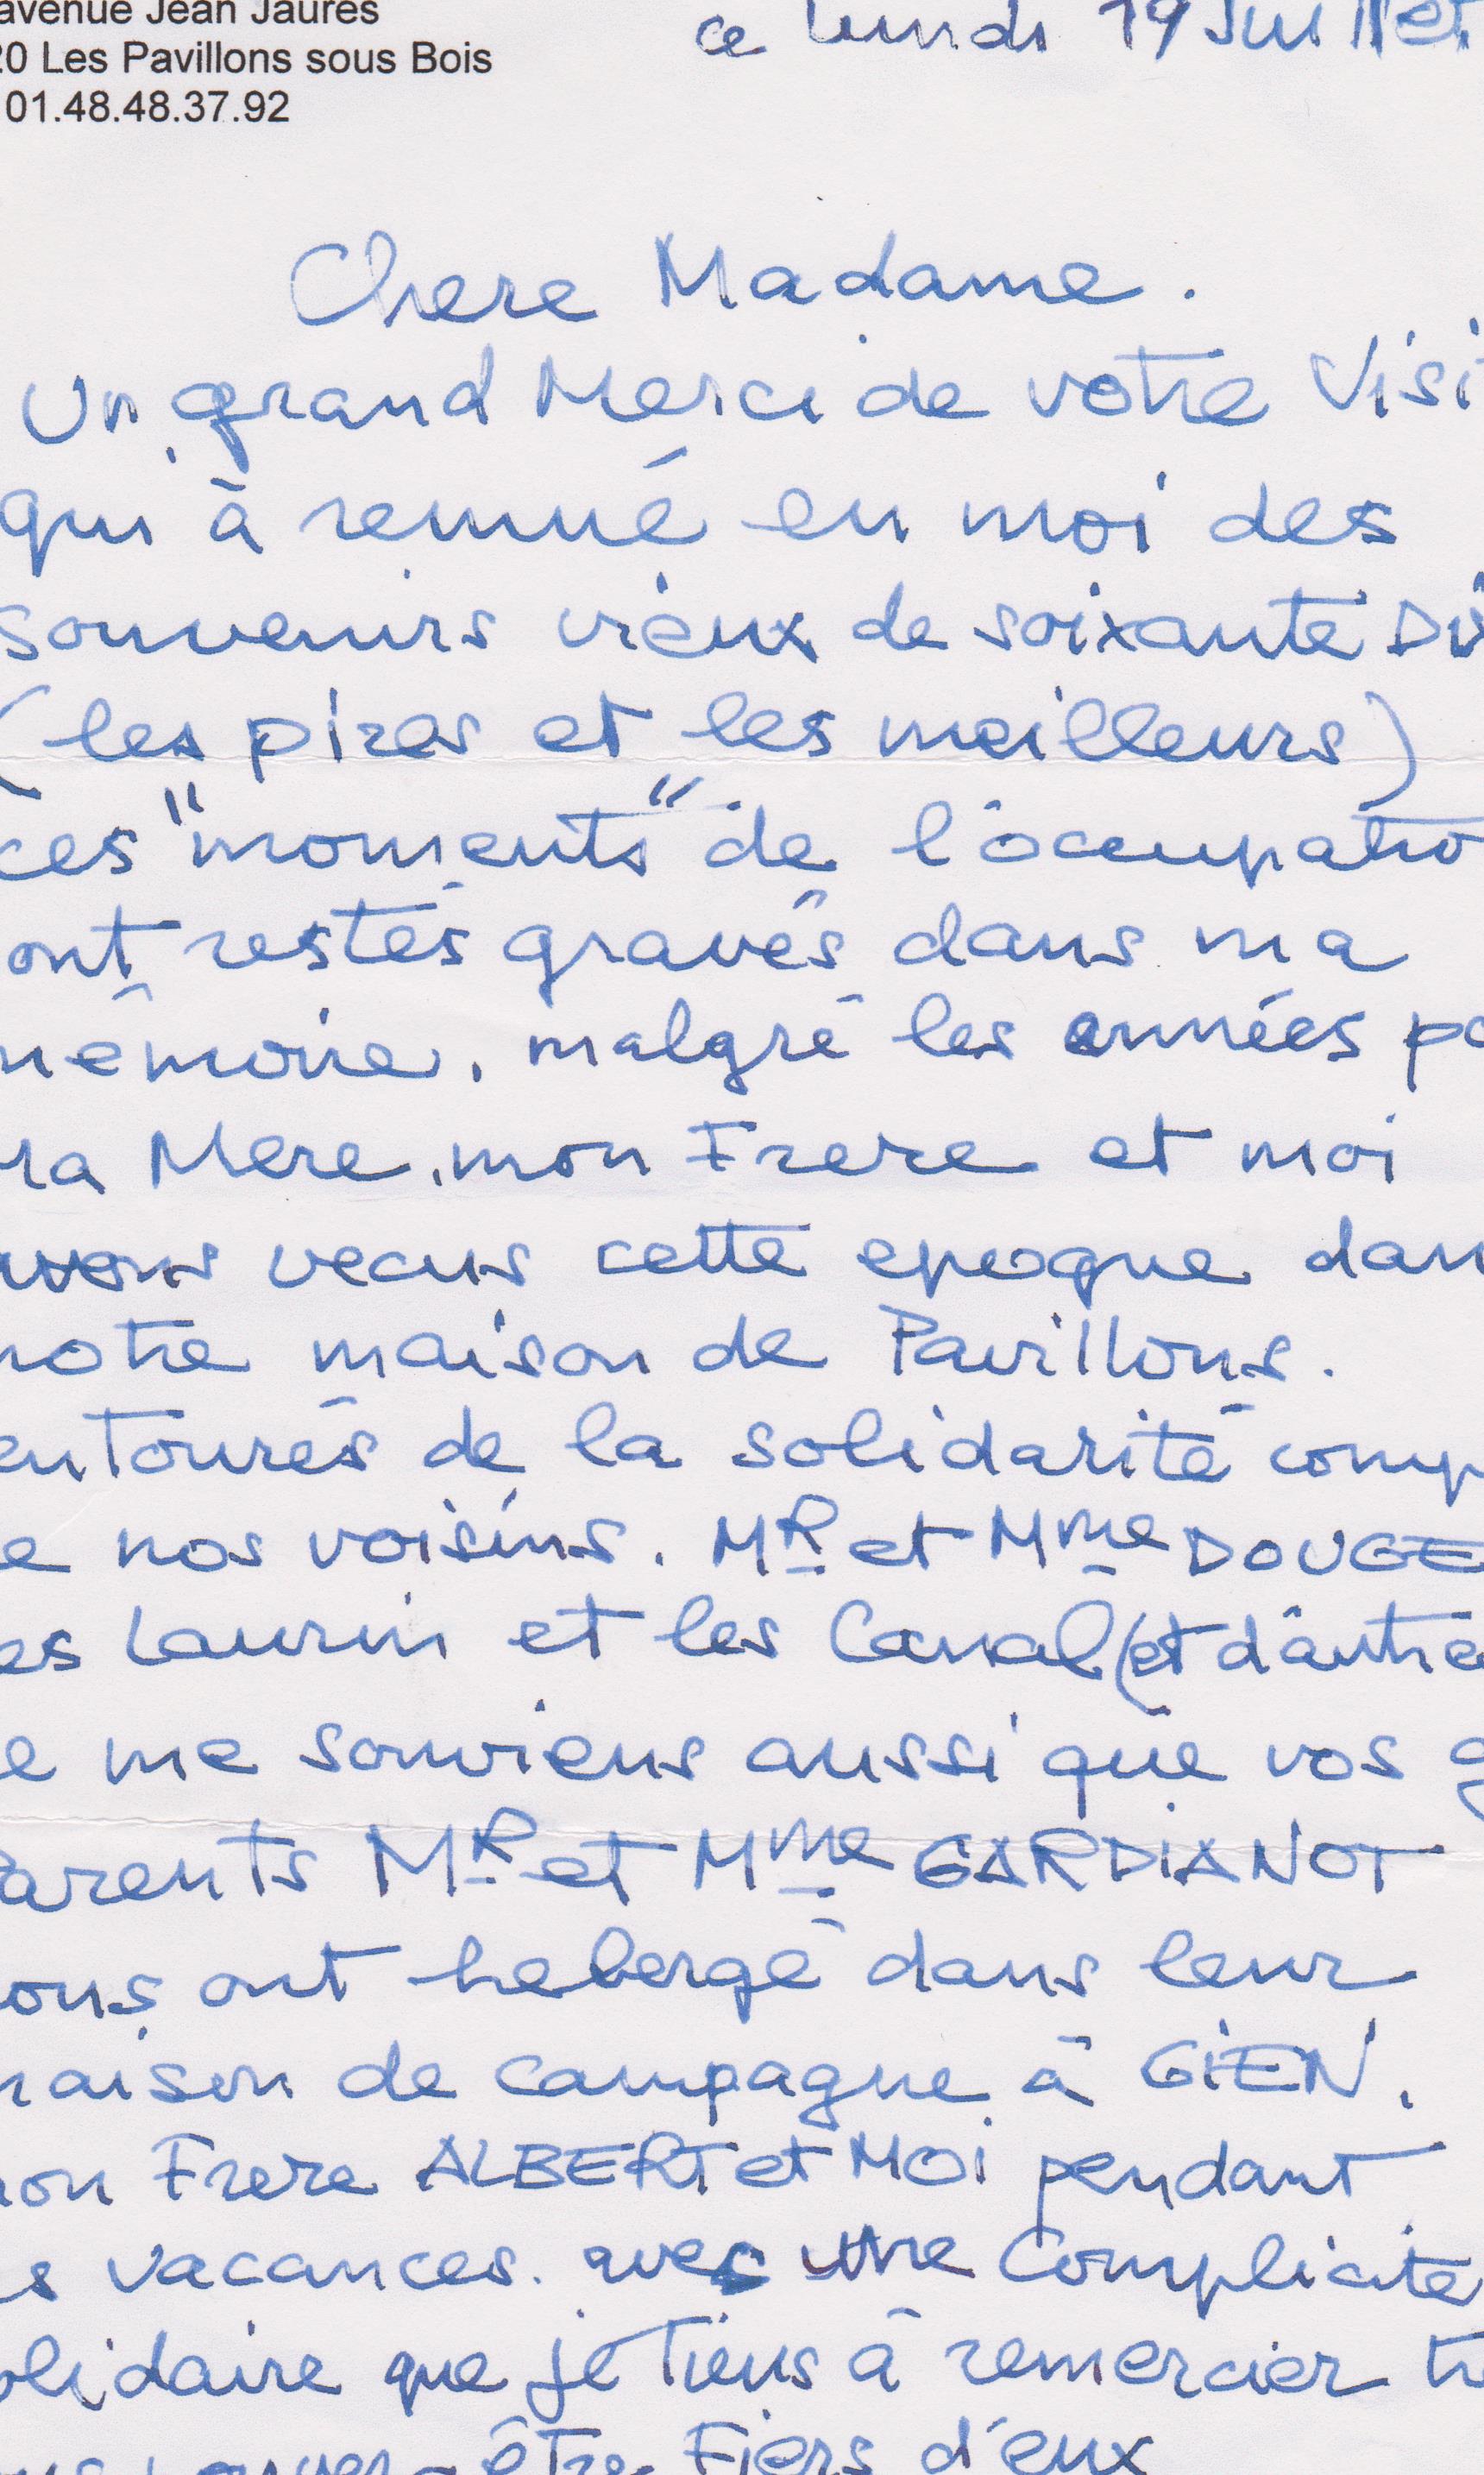 avenue Jean Jaurès
20 Les Pavillons sous Bois
01.48.48.37.92
ce lundi 19 Juillet
Chere Madame.
Un grand Merci de votre Visi
qui à remué en moi des
souvenirs vieux de soixante Di
(les pires et les meilleurs)
ces "moments" de l'occupatio
ont restés gravés dans ma
mémoire, malgré les années pa
ma Mere, mon Frere et moi
avons vecus cette epoque dan
notre maison de Pavillons.
entourés de la solidarité comp
e nos voisins. MR et Mme DOUGE
es Laurin et les Canal (et d'autre
e me souviens aussi que vos g
Parents MR et Mme GARDIANOT
ous ont hebergé dans leur
maison de campagne à GIEN,
mon Frere ALBERT et MOi pendant
es vacances. avec une Complicité
olidaire que je Tiens à remercier
être Fiers d'eux